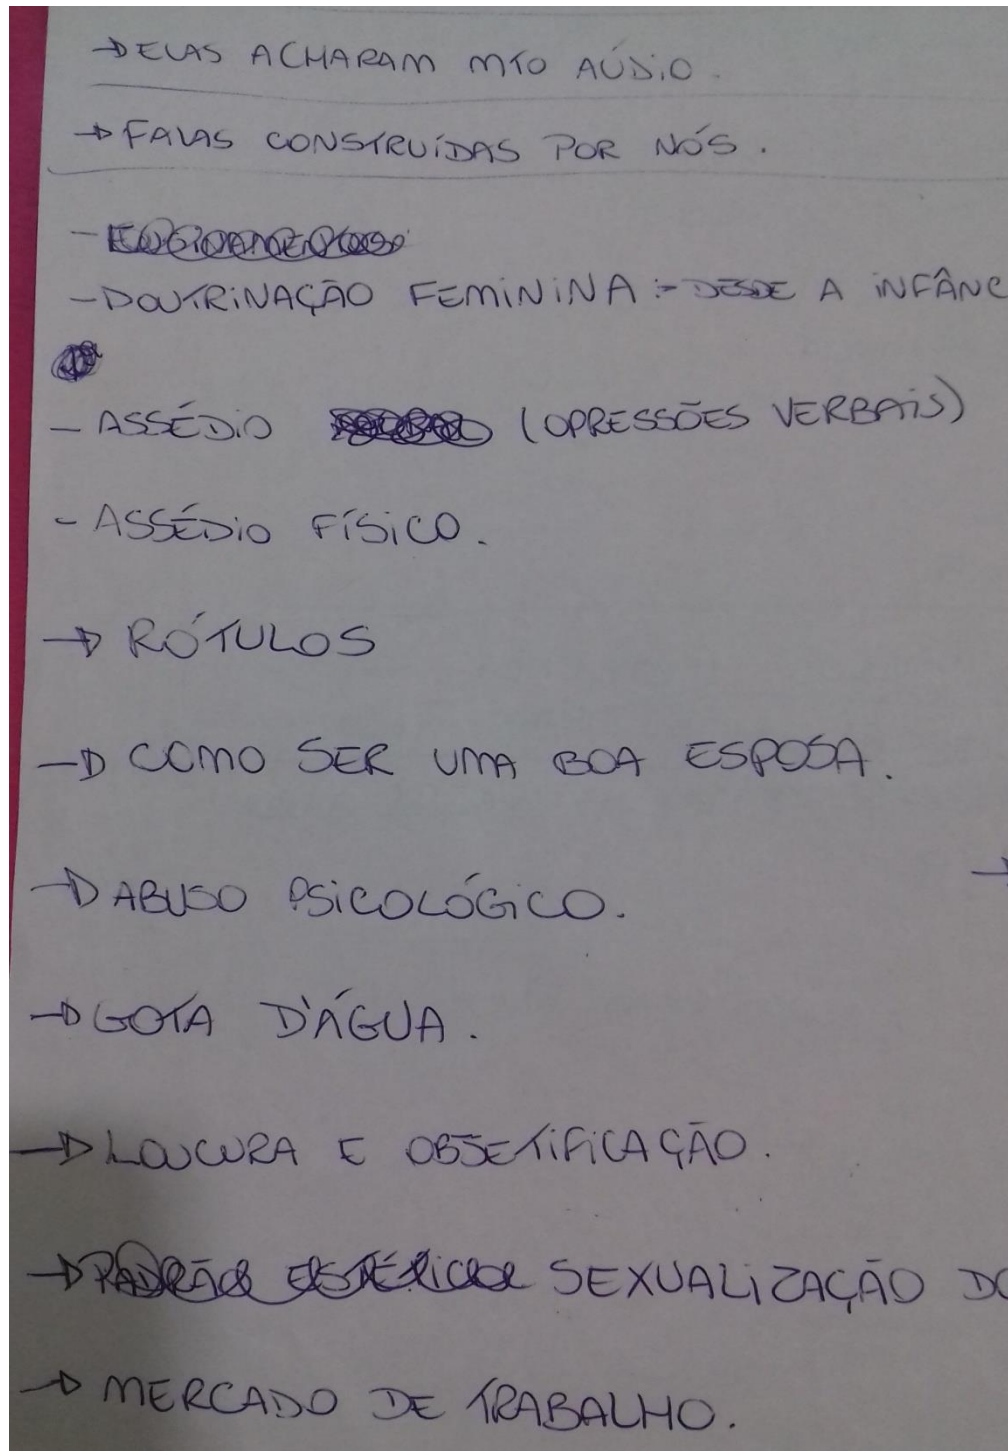 → ELAS ACHARAM MTO AÚDIO.
→ FALAS CONSTRUÍDAS POR NÓS.
- DOUTRINAÇÃO FEMININA :- DESDE A INFÂNC
- ASSÉDIO (OPRESSÕES VERBAIS)
- ASSÉDIO FÍSICO.
→ RÓTULOS
→ COMO SER UMA BOA ESPOSA.
→ ABUSO PSICOLÓGICO.
→ GOTA D'ÁGUA.
→ LOUCURA E OBJETIFICAÇÃO.
→ PADRÃO ESTÉTICO SEXUALIZAÇÃO DO
→ MERCADO DE TRABALHO.